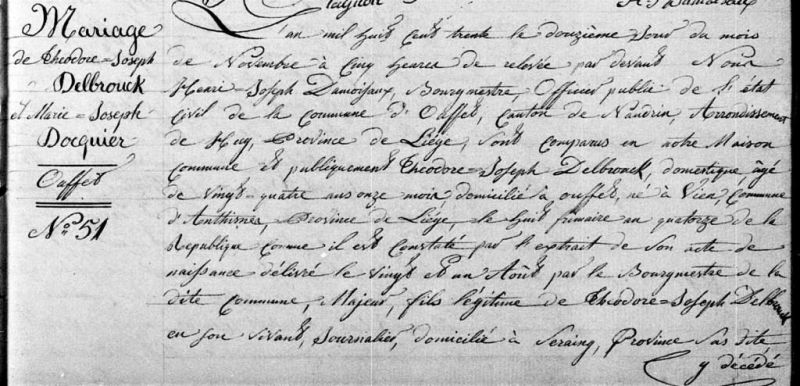 Mariage
de Théodore=Joseph
Delbrouck
et Marie=Joseph
Docquier
Ouffet
N.º 51
L'an mil huit cent trente le douzième jour du mois
de Novembre à Cinq heures de relevée par devant Nous
Henri=Joseph Damoiseaux, Bourgmestre, Officier public de l'état
Civil de la Commune d'Ouffet, Canton de Nandrin, Arrondissement
de Huy, Province de Liége, sont comparus en notre Maison
Commune et publiquement Théodore=Joseph Delbrouck, domestique âgé
de vingt-quatre ans onze mois, domicilié à ouffet, né à Vien, Commune
d'Anthisnes, Province de Liége, le huit frimaire an quatorze de la
République comme il est Constaté par l'extrait de son acte de
naissance délivré le vingt et un Août par le Bourgmestre de la
dite Commune, Majeur, fils légitime de Théodore=Joseph Delbrouck
en son vivant, Journalier, domicilié à Seraing, Province sus dite,
y décédé